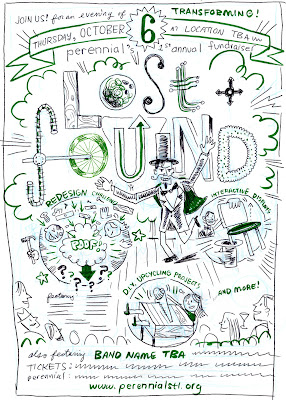 JOIN US! for an evening of TRANSFORMING!
THURSDAY, OCTOBER 6 at LOCATION TBA
perennial's 1st annual fundraiser
LOST +
FOUND
REDESIGN CHALLENGE
POOF!
? ? ? ? ?
featuring
INTERACTIVE
D.I.Y. UPCYCLING PROJECTS
AND MORE!
also featuring BAND NAME TBA
TICKETS:
perennial:
www.perennialstl.org